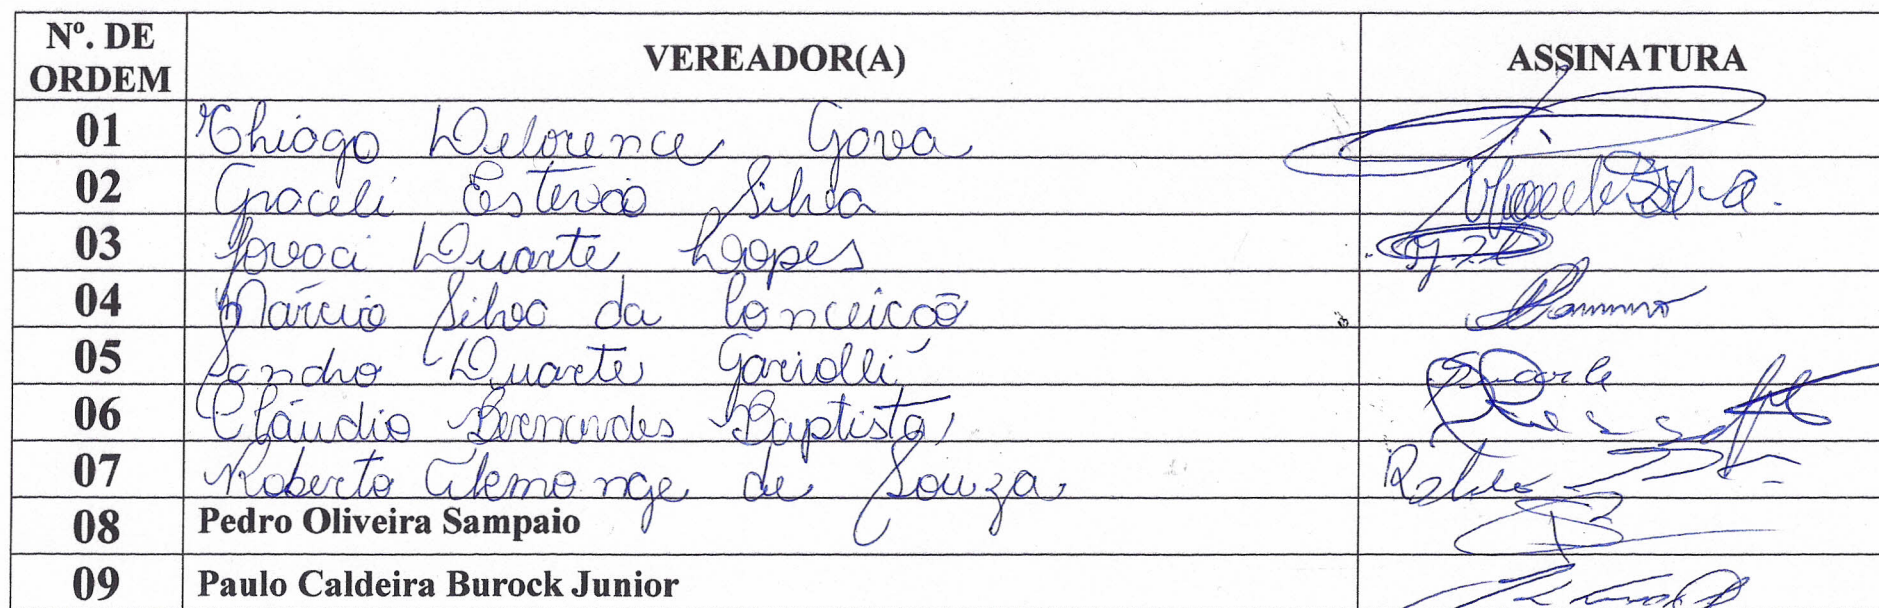 Nº. DE ORDEM VEREADOR(A) ASSINATURA
01 Thiago Delorence Gava
02 Graceli Estevão Silva
03 Jovaci Duarte Lopes
04 Márcio Silva da Conceição
05 Sandro Duarte Gariolli
06 Cláudio Bernardes Baptista
07 Roberto Alemonge de Souza
08 Pedro Oliveira Sampaio
09 Paulo Caldeira Burock Junior